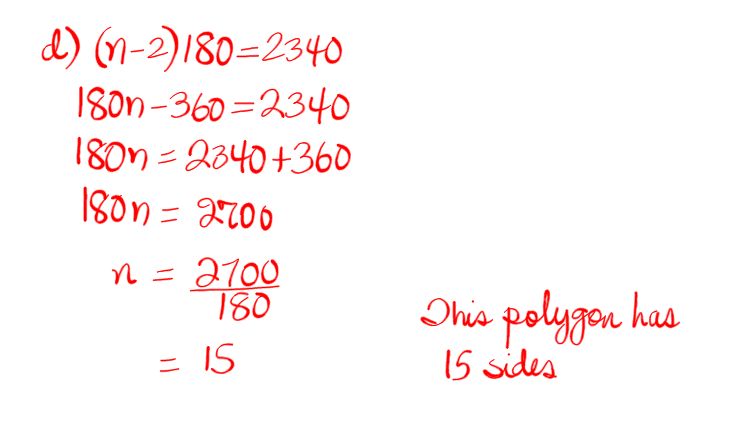 d) (n-2)180=2340
180n-360=2340
180n=2340+360
180n=2700
n = 2700/180
= 15
This polygon has
15 sides